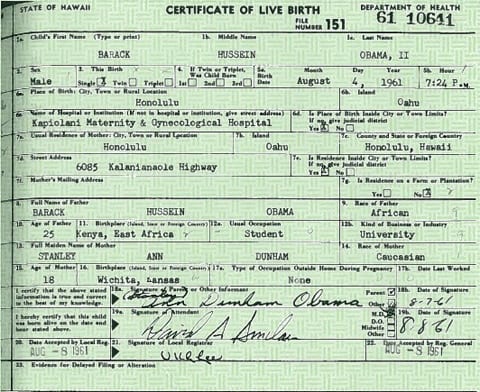 STATE OF HAWAII CERTIFICATE OF LIVE BIRTH DEPARTMENT OF HEALTH
FILE NUMBER 151 61 10641
1a. Child's First Name (Type or print) 1b. Middle Name 1c. Last Name
BARACK HUSSEIN OBAMA, II
2. Sex 3. This Birth 4. If Twin or Triplet, Was Child Born 5a. Birth Date Month Day Year 5b. Hour
Male Single Twin Triplet 1st 2nd 3rd August 4, 1961 7:24 P.M.
6a. Place of Birth: City, Town or Rural Location 6b. Island
Honolulu Oahu
6c. Name of Hospital or Institution (If not in hospital or institution, give street address) 6d. Is Place of Birth Inside City or Town Limits? If no, give judicial district
Kapiolani Maternity & Gynecological Hospital Yes No
7a. Usual Residence of Mother: City, Town or Rural Location 7b. Island 7c. County and State or Foreign Country
Honolulu Oahu Honolulu, Hawaii
7d. Street Address 7e. Is Residence Inside City or Town Limits? If no, give judicial district
6085 Kalanianaole Highway Yes No
7f. Mother's Mailing Address 7g. Is Residence on a Farm or Plantation?
Yes No
8. Full Name of Father 9. Race of Father
BARACK HUSSEIN OBAMA African
10. Age of Father 11. Birthplace (Island, State or Foreign Country) 12a. Usual Occupation 12b. Kind of Business or Industry
25 Kenya, East Africa Student University
13. Full Maiden Name of Mother 14. Race of Mother
STANLEY ANN DUNHAM Caucasian
15. Age of Mother 16. Birthplace (Island, State or Foreign Country) 17a. Type of Occupation Outside Home During Pregnancy 17b. Date Last Worked
18 Wichita, Kansas None
I certify that the above stated information is true and correct to the best of my knowledge. 18a. Signature of Parent or Other Informant Parent Other 18b. Date of Signature
(Stanley) Ann Dunham Obama 8-7-61
I hereby certify that this child was born alive on the date and hour stated above. 19a. Signature of Attendant M.D. D.O. Midwife Other 19b. Date of Signature
David A Sinclair 8 8 61
20. Date Accepted by Local Reg. 21. Signature of Local Registrar 22. Date Accepted by Reg. General
AUG -8 1961 U K L Lee AUG -8 1961
23. Evidence for Delayed Filing or Alteration